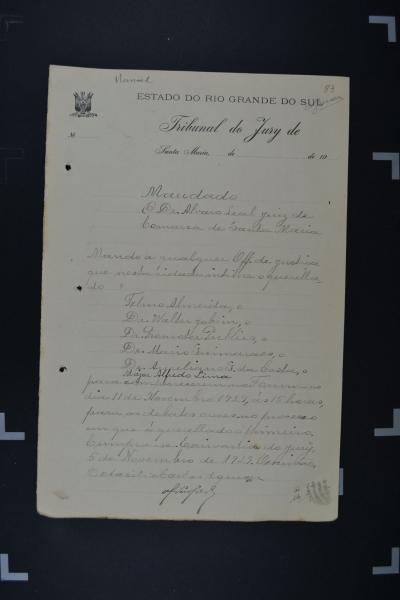 Manoel
83
ESTADO DO RIO GRANDE DO SUL
Tribunal do Jury de
N.
Santa Maria, de de 19
Mandado
O Dr. Alvaro Leal, juiz de
Comarca de Santa Maria
Mando a qualquer Off. de justiça
que nesta cidade intime o querella-
do
Telmo Almeida, o
Dr. Walter Jobim, o
Dr. Promotor Publico, o
Dr. Mario Guimaraes, o
Dr. Aureliano F. da Costa, o
Major Alfredo Lima
para comparecerem no Forum no
dia 11 de Novembro 1927, ás 15 horas,
para os debates oraes no processo
em que é querellado o primeiro.
Cumpra-se. Escrivania do Jury,
5 de Novembro de 1927.